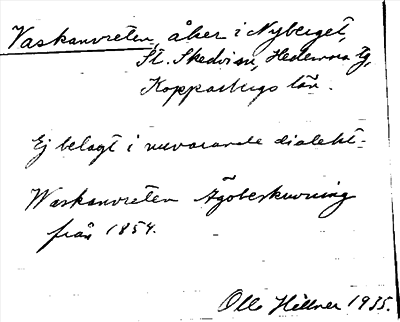 Vaskanvreten, åker i Nyberget,
St. Skedvi sn, Hedemora tg,
Kopparbergs län.
Ej belagt i nuvarande dialekt.
Waskanvreten Ägobeskrivning
från 1854.
Olle Hellner 1935.